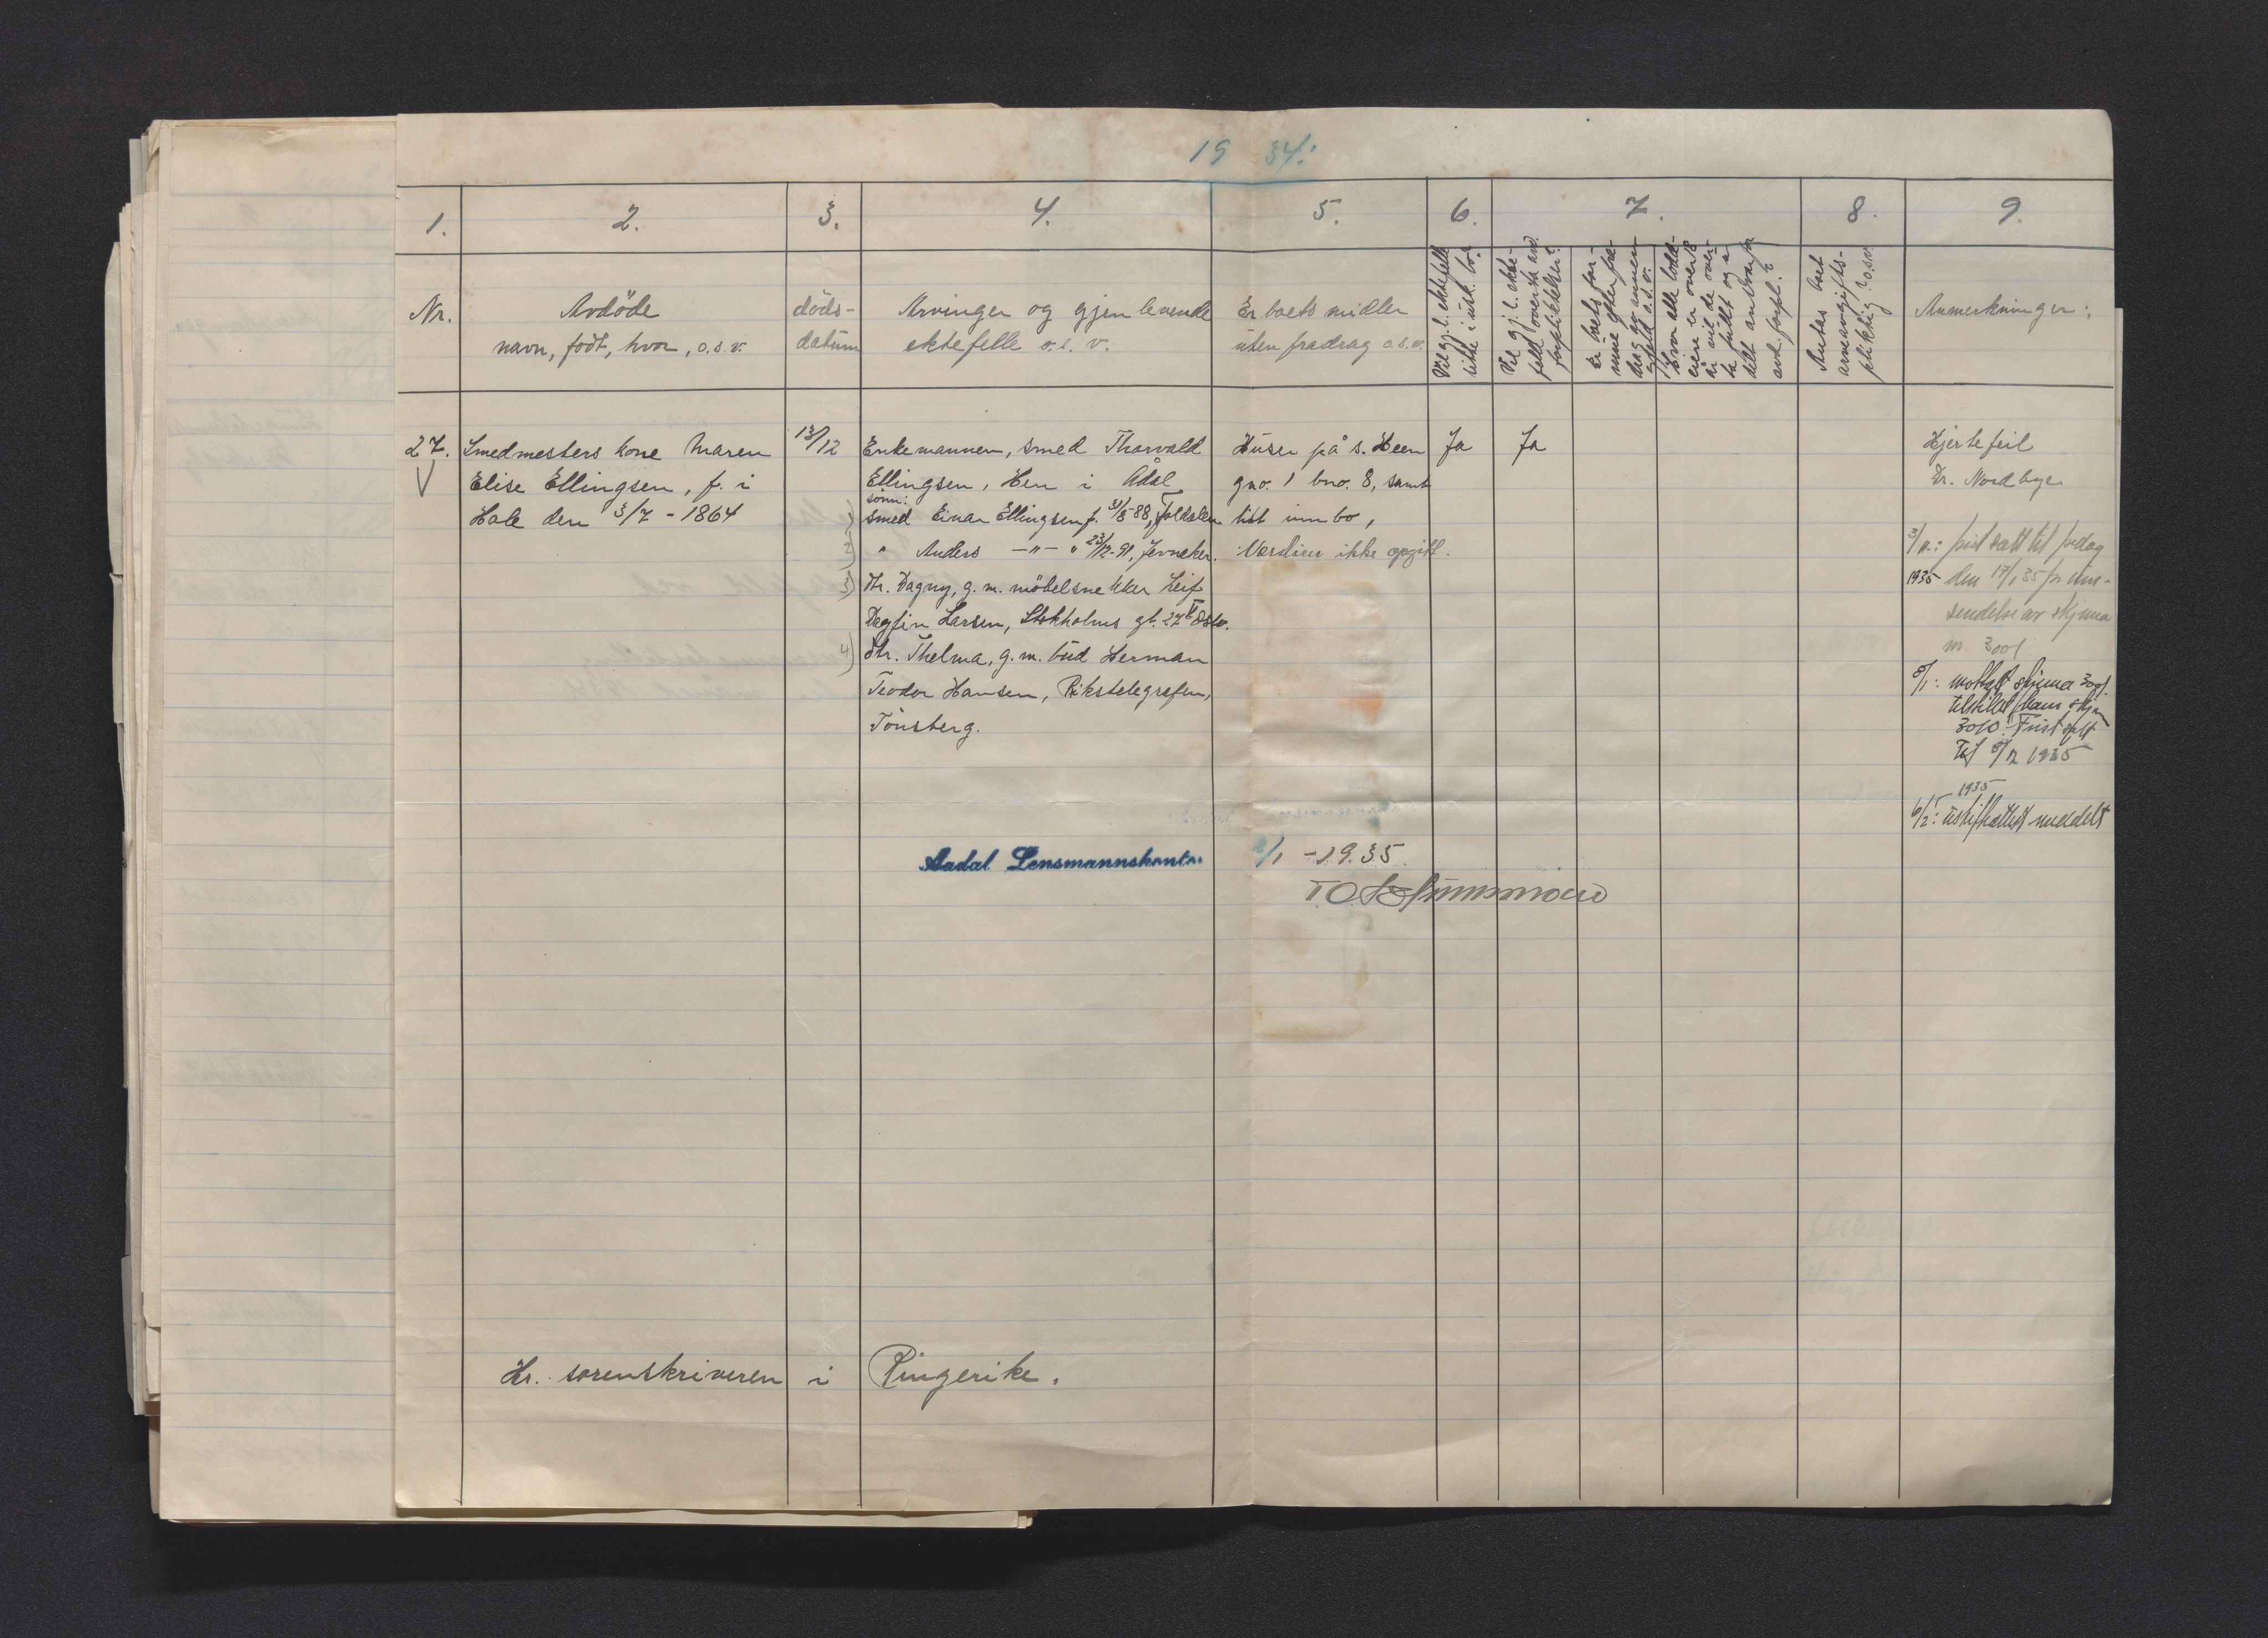 19 34.
1.
2.
3.
4.
5.
6.
7.
8.
9.
Nr.
Avdöde
navn, födt, hvor, o.s.v.
döds-
datum
Arvinger og gjenlevende
ektefelle o.s.v.
Er boets midler
uten fradrag o.s.v.
Vil gj.l. ektefelle
sitte i usk. bo?
Vil gj.l. ekte-
felle overta avd.
forpliktelser?
Antas boet
arveavgifts-
pliktig? o.s.v.
Anmerkninger:
27.
Smedmesters kone Maren
Elise Ellingsen, f. i
Hole den 3/7 - 1864
13/12
Enkemannen, smed Thorvald
Ellingsen, Hen i Ådal
sönn:
1) smed Einar Ellingsen f. 31/8-88,
2) " Anders -"- " 23/12-91, Jevnaker.
3) dtr. Dagny, g.m. möbelsnekker Leif
Dagfin Larsen, Stokholms gt. 27 Oslo.
4) dtr. Thelma, g.m. bud Herman
Teodor Hansen, Rikstelegrafen,
Tönsberg.
Huser på s. Heen
gno. 1 bno. 8, samt
litt innbo,
Verdien ikke opgitt.
Ja
Ja
Hjertefeil
Dr. Nordbye
3/1: frist satt til fredag
1935 den
sendelse av skjema
nr. 3001
8/1: mottatt skjema 3001.
tilstillet skjm
3010. Frist satt
til 1935
1935
6/2: uskifteattest meddelt
Aadal Lensmannskontor
2/1 - 1935.
Hr. sorenskriveren i Ringerike.